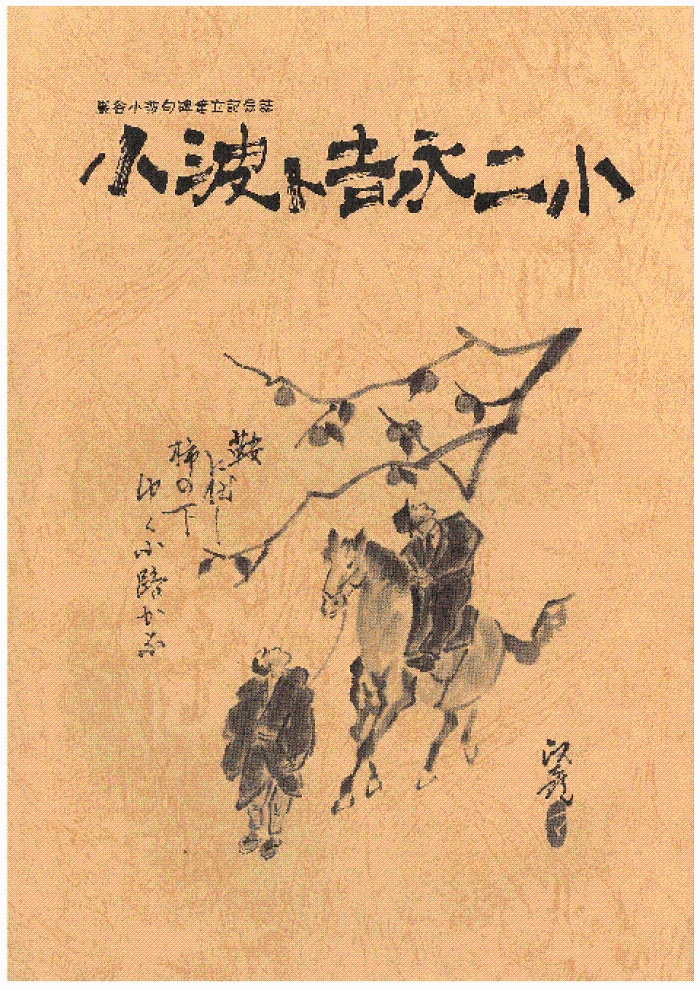 巌谷小波句碑建立記念誌
小波ト吉永二小
鞍に伏し
柿の下
ゆく小路かな